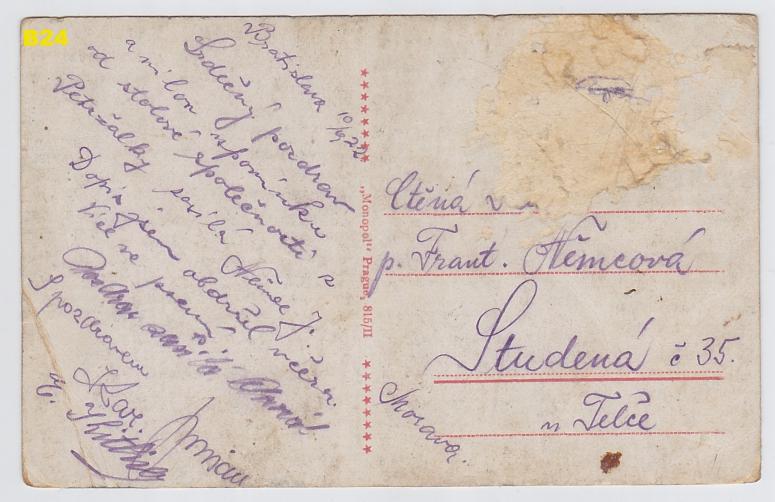 B24
Bratislava 10/IX 22
Srdečný pozdrav
a milou vzpomínku
od stolové společnosti z
Petržalky zasílá Němec J.
Dopis jsem obdržel včera.
Více ve psaní
S pozdravem
Kar.
„Monopol” Prague, 815/II
Ctěná
p. Frant. Němcová
Studená č 35.
u Telče
Morava.